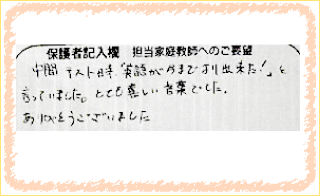 保護者記入欄 担当家庭教師へのご要望
中間テスト時、「英語が今までより出来た!」と
言っていました。とても嬉しい言葉でした。
ありがとうございました